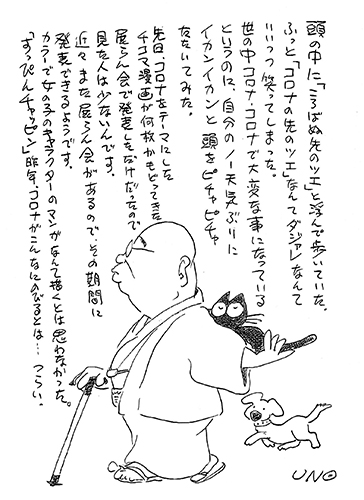 頭の中に「ころばぬ先のツエ」と浮んで歩いていた。
ふっと「コロナの先のツエ」なんてダジャレなんて
いいつつ笑ってしまった。
世の中コロナ・コロナで大変な事になっている
というのに、自分のノー天気ぶりに
イカンイカンと頭をピチャピチャ
たたいてみた。
先日、コロナをテーマにした
1コマ漫画が何枚かもどってきた
展らん会で発表しただけだったので
見た人は少ないんです。
近々また展らん会があるので、その期間に
発表できるようです。
カラーで女の子のキャラクターのマンガなんて描くとは思わなかった。
「すっぴんチャッピン」昨年、コロナがこんなにのびるとは…つらい。
UNO